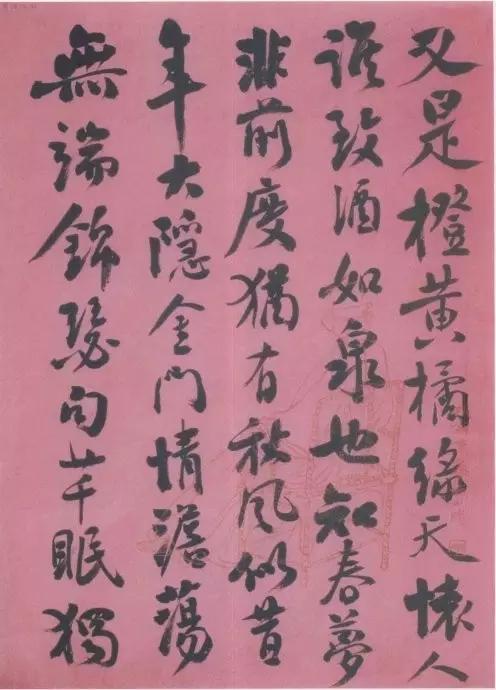 又是橙黃橘綠天懷人
誰致酒如泉也知春夢
非前度猶有秋風似昔
年大隱金門情澹蕩
無端錦瑟句芊眠獨